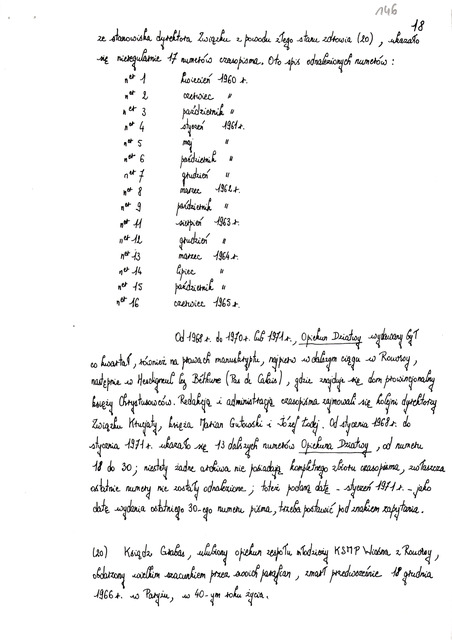 146
18
ze stanowiska dyrektora Związku z powodu złego stanu zdrowia (20), ukazało
się nieregularnie 17 numerów czasopisma. Oto spis odnalezionych numerów :
ner 1 kwiecień 1960 r.
ner 2 czerwiec "
ner 3 październik "
ner 4 styczeń 1961 r.
ner 5 maj "
ner 6 październik "
ner 7 grudzień "
ner 8 marzec 1962 r.
ner 9 październik "
ner 11 sierpień 1963 r.
ner 12 grudzień "
ner 13 marzec 1964 r.
ner 14 lipiec "
ner 15 październik "
ner 16 czerwiec 1965 r.
Od 1968 r. do 1970 r. lub 1971 r., Opiekun Dziatwy wydawany był
co kwartał, również na prawach manuskryptu, najpierw w dalszym ciągu w Rouvroy,
następnie w Hesdigneul lez Béthune (Pas de Calais), gdzie znajduje się dom prowincjonalny
księży Chrystusowców. Redakcją i administracją czasopisma zajmowali się kolejni dyrektorzy
Związku Krucjaty, księża Marian Gutowski i Józef Łodej. Od stycznia 1968 r. do
stycznia 1971 r. ukazało się 13 dalszych numerów Opiekuna Dziatwy, od numeru
18 do 30 ; niestety żadne archiwa nie posiadają kompletnego zbioru czasopisma, zwłaszcza
ostatnie numery nie zostały odnalezione ; toteż podaną datę - styczeń 1971 r. - jako
datę wydania ostatniego 30-ego numeru pisma, trzeba postawić pod znakiem zapytania.
(20) Ksiądz Grabas, ulubiony opiekun zespołu młodzieży KSMP Wiosna z Rouvroy,
obdarzony wielkim szacunkiem przez swoich parafian, zmarł przedwcześnie 18 grudnia
1966 r. w Paryżu, w 40-ym roku życia.